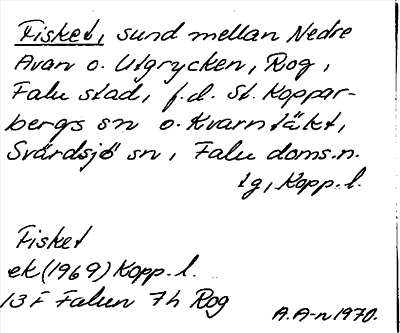 Fisket, sund mellan Nedre
Avan o. Utgrycken, Rog,
Falu stad, f.d. St. Koppar-
bergs sn o. Kvarntäkt,
Svärdsjö sn, Falu doms.n.
tg, Kopp. l.
Fisket
ek (1969) Kopp. l.
13 F Falun 7h Rog
A.A-n 1970.